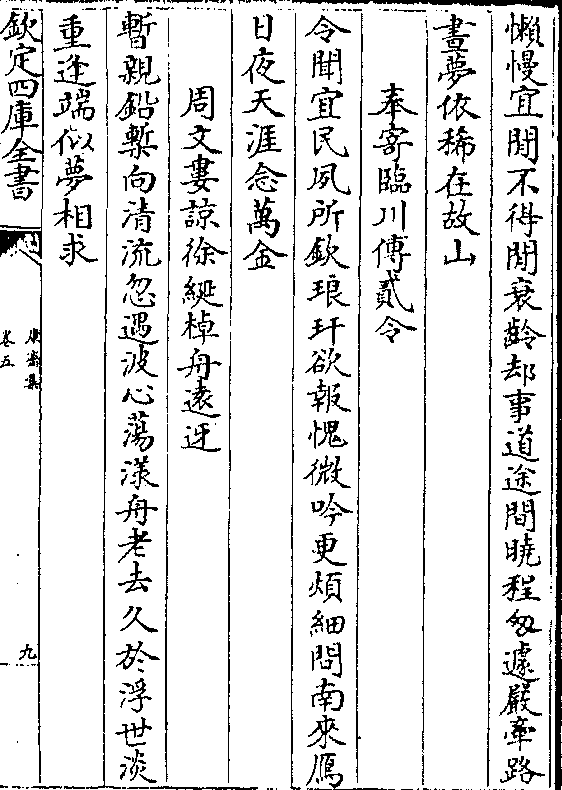 懶慢宜閒不得閒衰齡却事道途間曉程匆遽嚴牽路
晝夢依稀在故山
奉寄臨川傅貳令
令聞宜民夙所欽琅玕欲報愧微吟更煩細問南來鴈
日夜天涯念萬金
周文婁諒徐綖棹舟遠迓
暫親鉛槧向清流忽遇波心蕩漾舟老去久於浮世淡
重逢端似夢相求
欽定四庫全書
康齋集
卷五
九